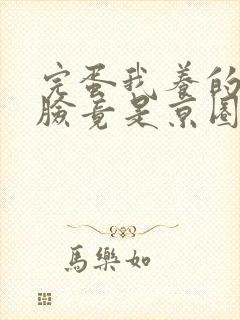 完蛋我養的
臉竟是京圈
馬樂如